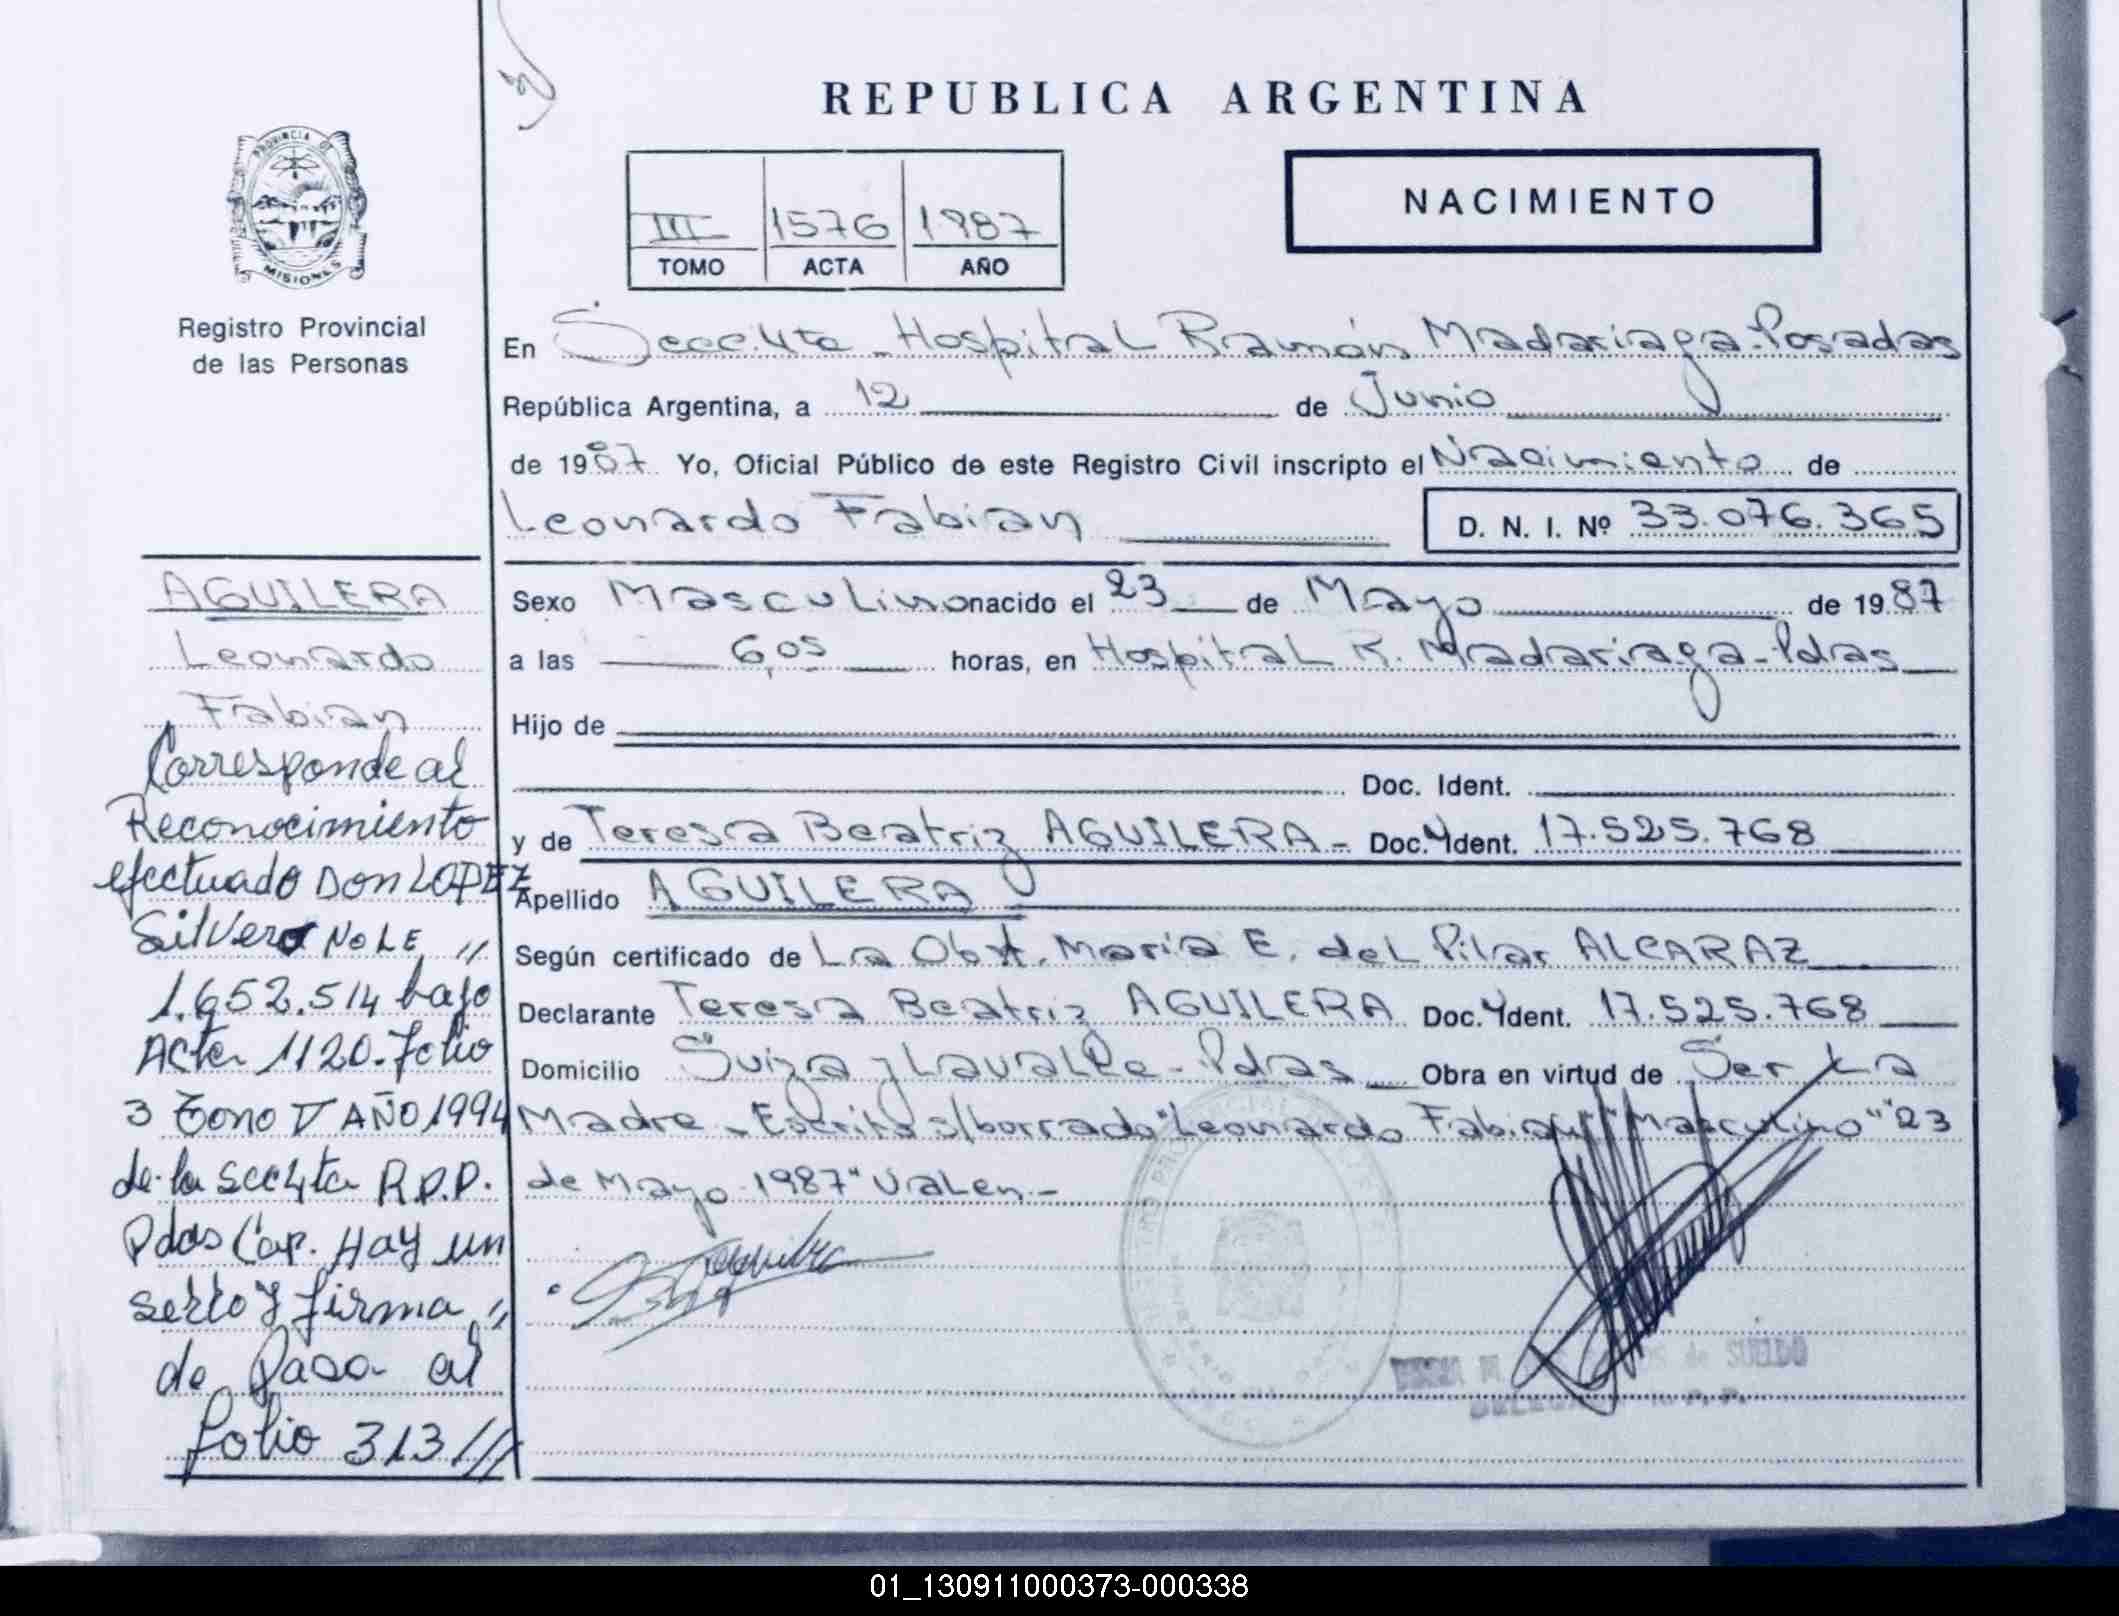 REPUBLICA ARGENTINA
PROVINCIA DE
MISIONES
Registro Provincial
de las Personas
III 1576 1987
TOMO ACTA AÑO
NACIMIENTO
En Secc. 4ta - Hospital Ramón Madariaga - Posadas
República Argentina, a 12 de Junio
de 1987 Yo, Oficial Público de este Registro Civil inscripto el Nacimiento de
Leonardo Fabian
D. N. I. Nº 33.076.365
Sexo Masculino nacido el 23 de Mayo de 1987
a las 6,05 horas, en Hospital R. Madariaga - Pdas
Hijo de
Doc. Ident.
y de Teresa Beatriz AGUILERA - Doc. Ydent. 17.525.768
Apellido AGUILERA
Según certificado de La Obst. Maria E. del Pilar ALCARAZ
Declarante Teresa Beatriz AGUILERA Doc. Ydent. 17.525.768
Domicilio Suiza y Lavalle - Pdas Obra en virtud de Ser La
Madre - Escrito s/borrado "Leonardo Fabian" "Masculino" "23
de Mayo 1987" Valen. -
de SUELDO
AGUILERA
Leonardo
Fabian
Corresponde al
Reconocimiento
efectuado DON LOPEZ
Silvero No LE "
1.652.514 bajo
Acta 1120. Folio
3 Tomo V AÑO 1994
de la secc 4ta R.P.P.
Pdas Cap. Hay un
sello y firma "
de Pasa al
folio 313 ///
01_130911000373-000338